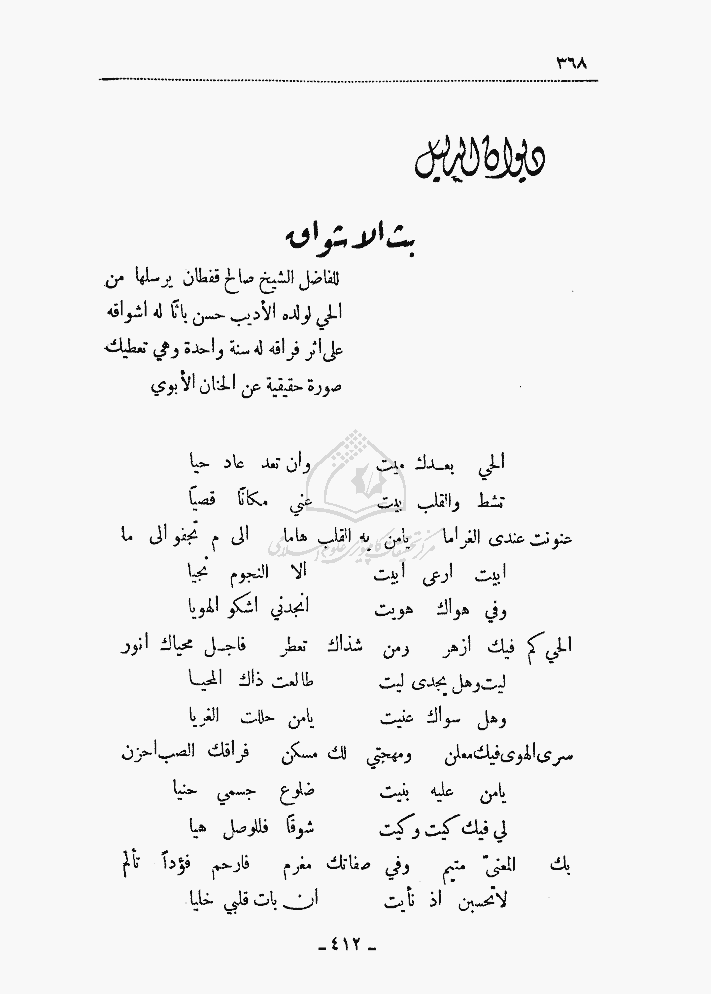 ٣٦٨
ديوان الدليل
بث الاشواق
للفاضل الشيخ صالح قفطان يرسلها من
الحي لولده الأديب حسن باثًا له اشواقه
على اثر فراقه له سنة واحدة وهي تعطيك
صورة حقيقية عن الحنان الأبوي
الحي بعدك ميت وان تعد عاد حيا
تشط والقلب بيت عني مكانًا قصيًا
عنونت عندي الغراما يامن به القلب هاما الى م تجفو الى ما
ابيت ارعى ابيت الا النجوم نجيا
وفي هواك هويت انجدني اشكو الهويا
الحي كم فيك ازهر ومن شذاك تعطر فاجل محياك انور
ليت وهل يجدى ليت طالعت ذاك المحيا
وهل سواك عنيت يامن حللت الغريا
سرى الهوى فيك معلن ومهجتي لك مسكن فراقك الصب احزن
يامن عليه بنيت ضلوع جسمي حنيا
لي فيك كيت وكيت شوقًا فللوصل هيا
بك المعنىّ متيم وفي صفاتك مغرم فارحم فؤداً تألم
لاتحسبن اذ نأيت ان بات قلبي خليا
ـ ٤١٢ ـ